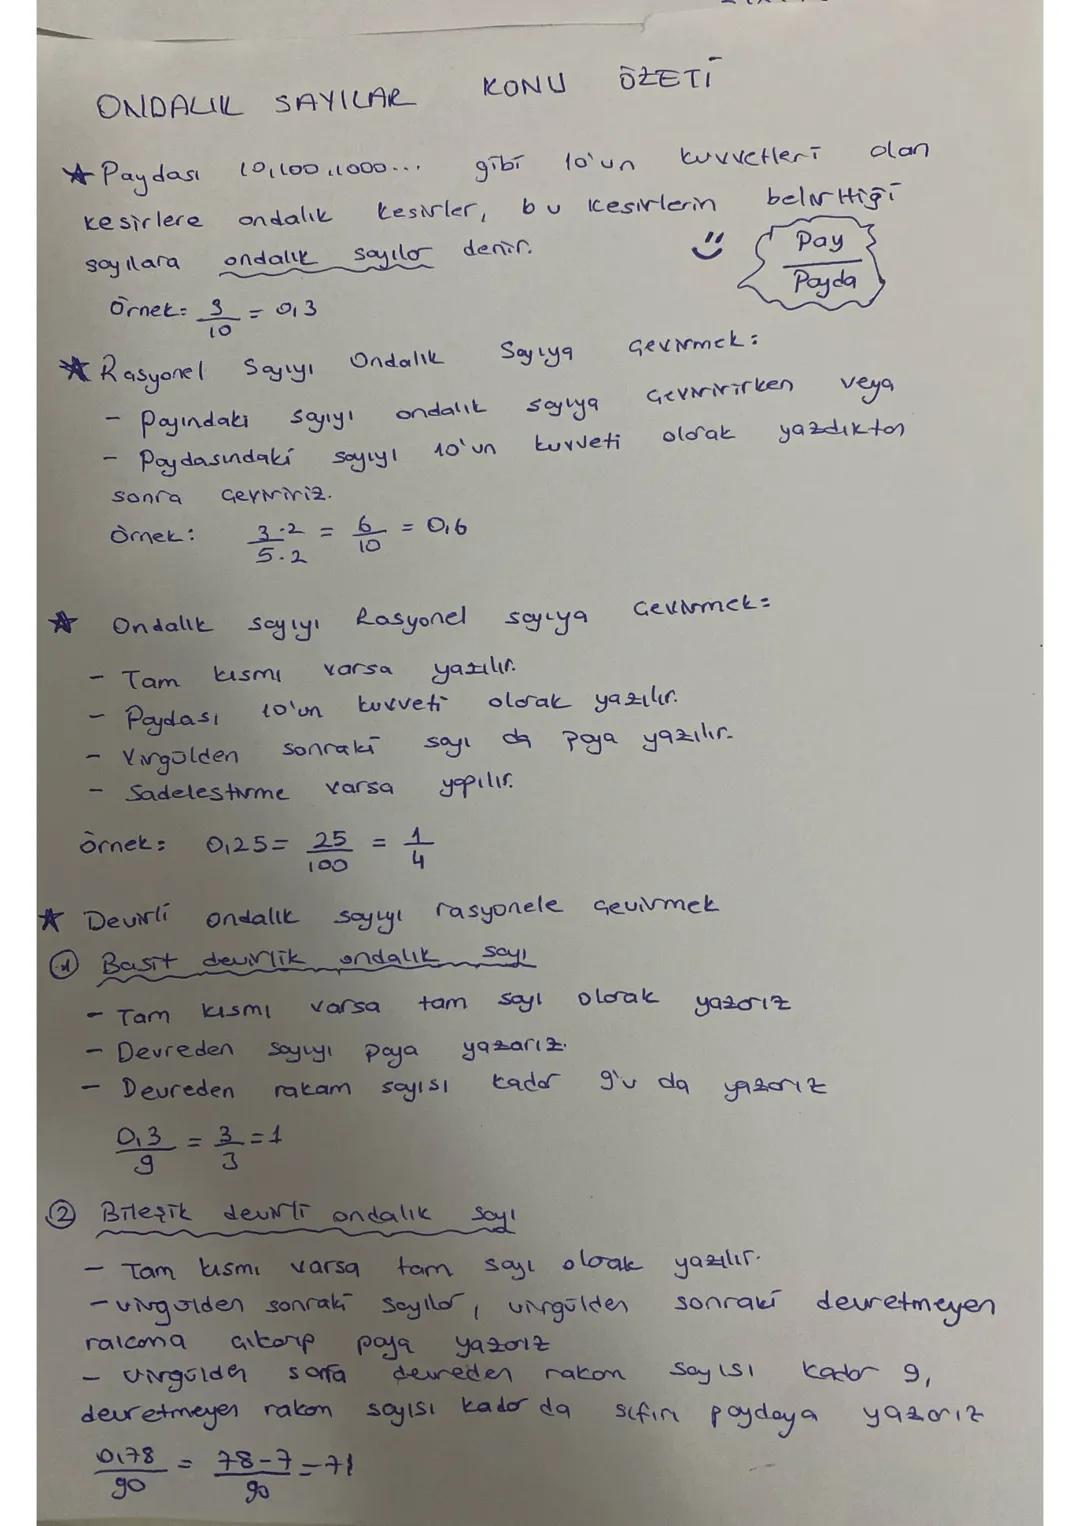 ONDALIK SAYILAR KONU ÖZETİ
☆ Paydası 10,100,1000... gibi 10'un kuvvetleri olan
kesirlere ondalık kesirler, bu kesirlerin belirttiği
sayılara ondalık sayılar denir.
Pay
Payda
Örnek: 3/10 = 0,3
☆ Rasyonel Sayıyı Ondalık Sayıya Çevirmek:
- Payındaki sayıyı ondalık sayıya çevirirken veya
- Paydasındaki sayıyı 10'un kuvveti olarak yazdıktan
sonra çeviririz.
Örnek: 3.2/5.2 = 6/10 = 0,6
☆ Ondalık sayıyı Rasyonel sayıya çevirmek:
- Tam kısmı varsa yazılır.
- Paydası 10'un kuvveti olarak yazılır.
- Virgülden sonraki sayı da paya yazılır.
- Sadeleştirme varsa yapılır.
örnek: 0,25 = 25/100 = 1/4
☆ Devirli ondalık sayıyı rasyonele çevirmek
1 Basit devirlik ondalık sayı
- Tam kısmı varsa tam sayı olarak yazarız
- Devreden sayıyı paya yazarız.
- Devreden rakam sayısı kadar 9'u da yazarız
0,3/9 = 3/3 = 1
2 Bileşik devirli ondalık sayı
- Tam kısmı varsa tam sayı olarak yazılır.
- virgülden sonraki sayılar, virgülden sonraki devretmeyen
rakama çıkarıp paya yazarız
- virgülden sonra devreden rakam sayısı kadar 9,
devretmeyen rakam sayısı kadar da sıfırı paydaya yazarız
0,78/90 = 78-7/90 = 71